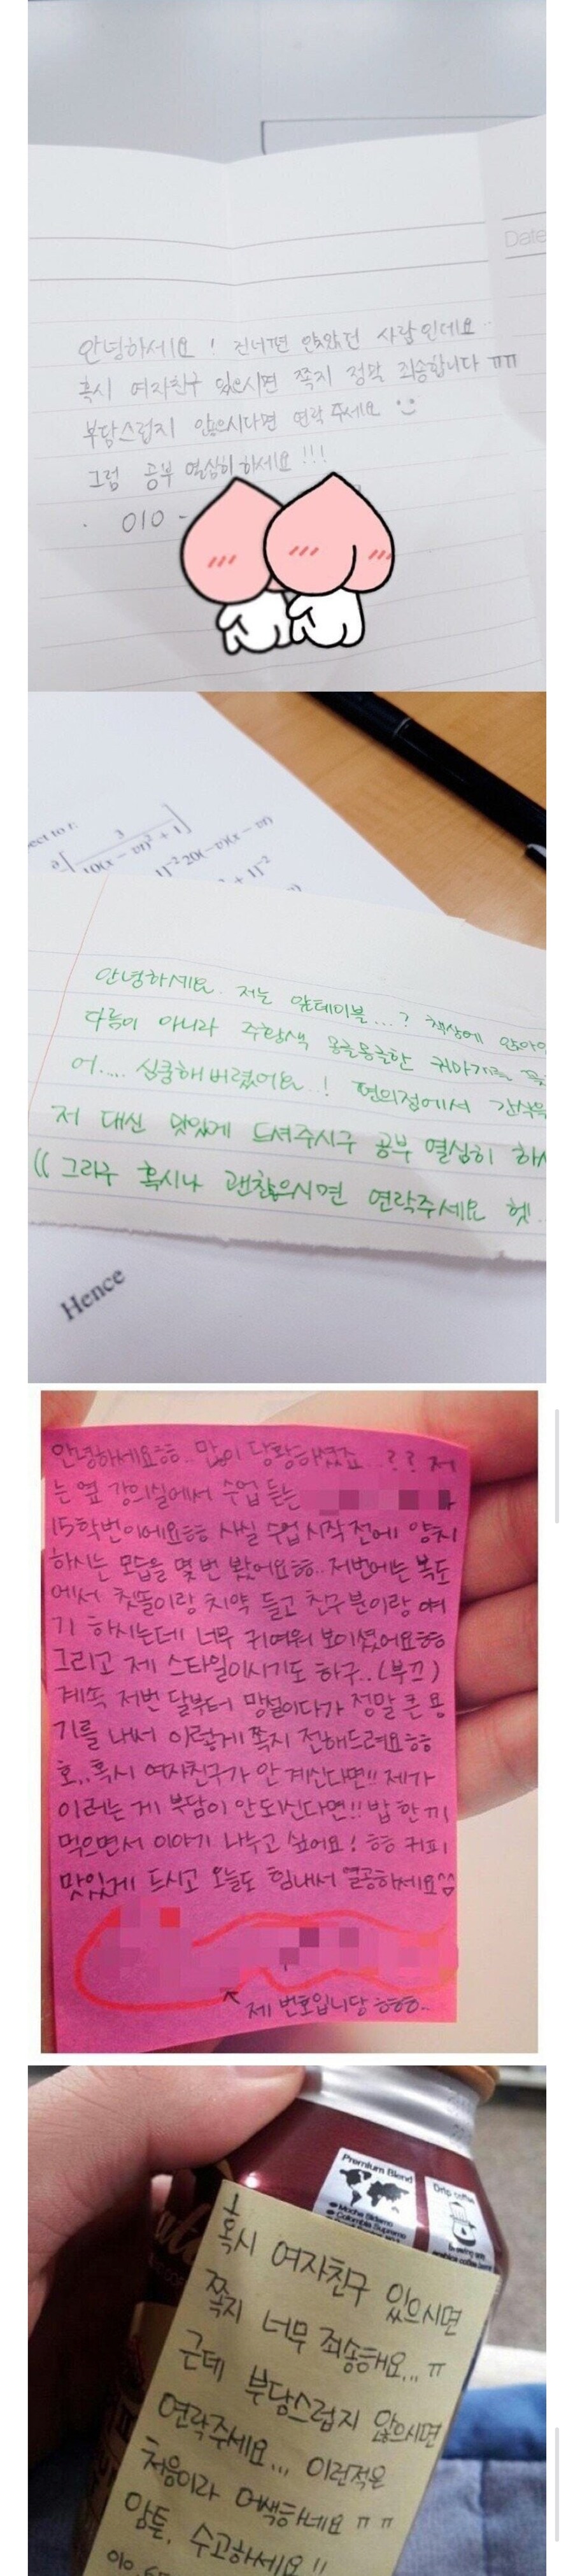 Date
안녕하세요 ! 건너편 앉았던 사람인데요..
혹시 여자친구 있으시면 쪽지 정말 죄송합니다 ㅠㅠ
부담스럽지 않으시다면 연락 주세요
그럼 공부 열심히 하세요 !!!
010 -
안녕하세요. 저는 앞테이블...? 책상에 앉아
다름이 아니라 주황색 몽글몽글한 귀마개를
어.... 심쿵해버렸어요..! 편의점에서 간식
저 대신 맛있게 드셔주시구 공부 열심히 하
(( 그리구 혹시나 괜찮으시면 연락주세요 헷!
Hence
안녕하세요ㅎㅎ.. 많이 당황하셨죠...?? 저
는 옆 강의실에서 수업 듣는
15학번이에요ㅎㅎ 사실 수업 시작 전에 양치
하시는 모습을 몇 번 봤어요ㅎㅎ.. 저번에는 복도
에서 칫솔이랑 치약 들고 친구분이랑 얘
기 하시는데 너무 귀여워 보이셨어요ㅎㅎ
그리고 제 스타일이시기도 하구..(부끄)
계속 저번 달부터 망설이다가 정말 큰 용
기를 내서 이렇게 쪽지 전해드려요ㅎㅎ
호,,혹시 여자친구가 안 계신다면!! 제가
이러는 게 부담이 안되신다면!! 밥 한 끼
먹으면서 이야기 나누고 싶어요! ㅎㅎ 커피
맛있게 드시고 오늘도 힘내서 열공하세요^^
제 번호입니당 ㅎㅎㅎ..
Premium Blend
Mocha Sidamo
Colombia Supremo
Drip coffee
혹시 여자친구 있으시면
쪽지 너무 죄송해요... ㅠ
근데 부담스럽지 않으시면
연락주세요... 이런적은
처음이라 어색하네요 ㅠㅠ
암튼, 수고하세요!!